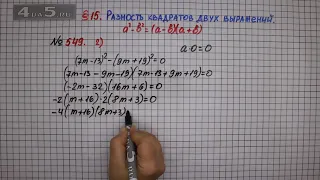 4 по 5 ми
§ 15. Разность квадратов двух выражений.
a²-b²=(a-b)(a+b)
№ 549. 2) a·0=0
(7m-13)²-(9m+19)²=0
(7m-13-9m-19)(7m-13+9m+19)=0
(-2m-32)(16m+6)=0
-2(m+16)·2(8m+3)=0
-4(m+16)(8m+3)